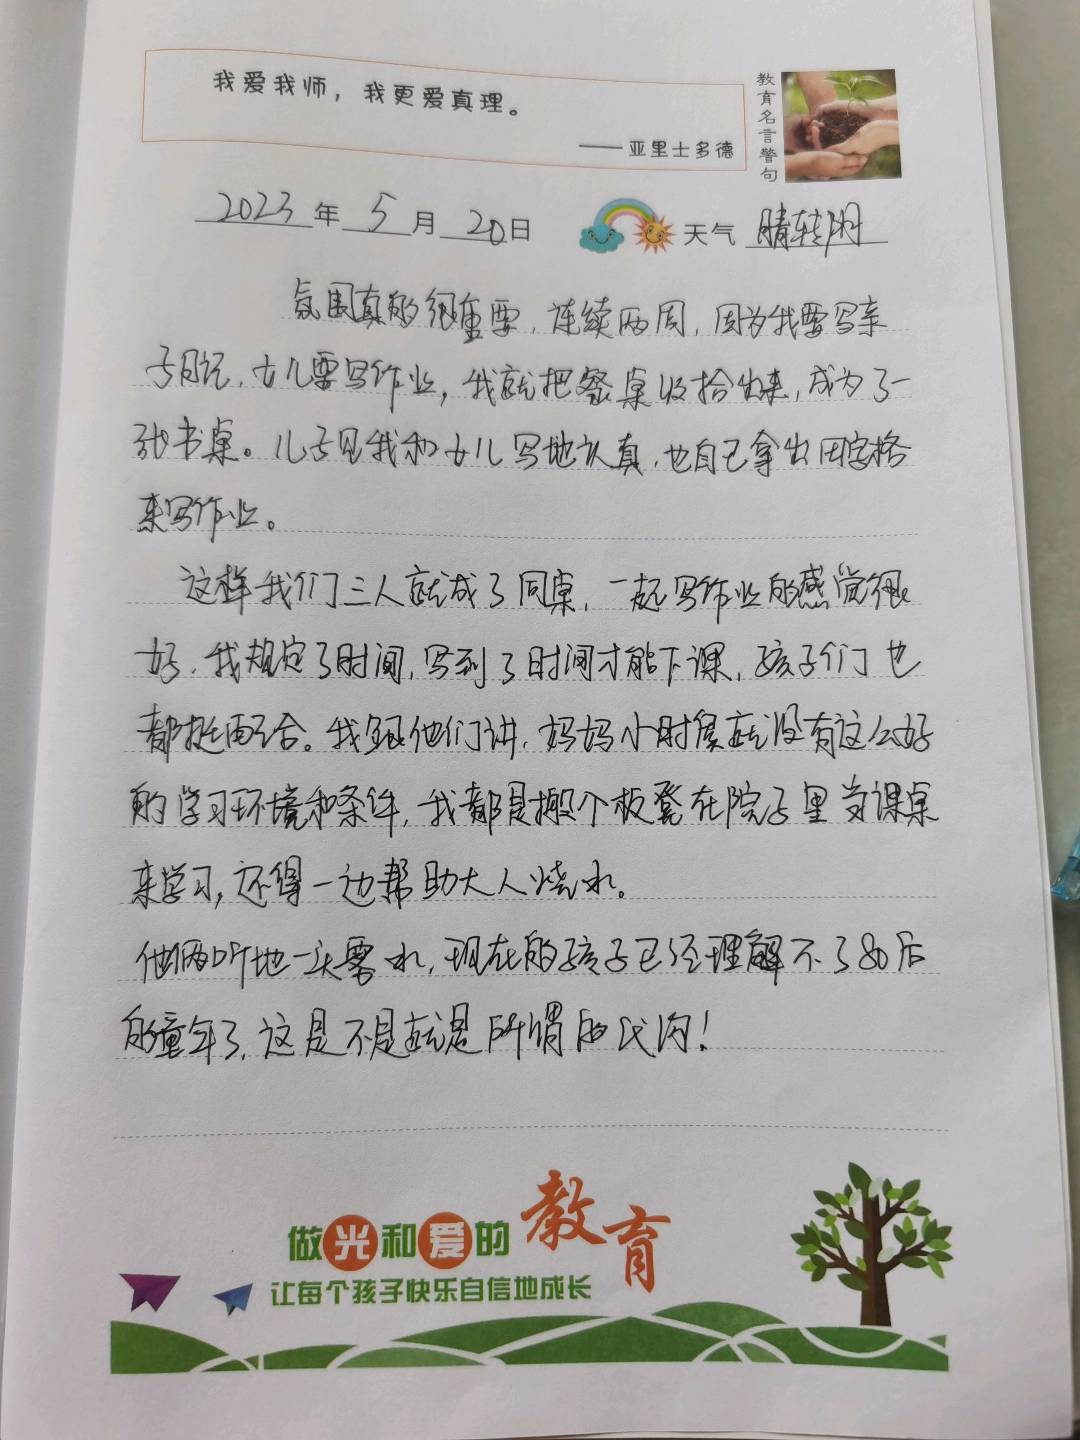 我爱我师，我更爱真理。
——亚里士多德
教育名言警句
2023年5月20日 天气 晴转阴
氛围真的很重要，连续两周，因为我要写亲
子月记，女儿要写作业，我就把餐桌收拾出来，成为了一
张书桌。儿子见我和女儿写地认真，也自己拿出田字格
来写作业。
这样我们三人就成了同桌，一起写作业的感觉很
好，我规定了时间，写到了时间才能下课，孩子们也
都挺配合。我跟他们讲，妈妈小时候就没有这么好
的学习环境和条件，我都是搬个板凳在院子里当课桌
来学习，还得一边帮助大人烧水。
他俩听地一头雾水，现在的孩子已经理解不了80后
的童年了，这是不是就是所谓的代沟！
做光和爱的教育
让每个孩子快乐自信地成长